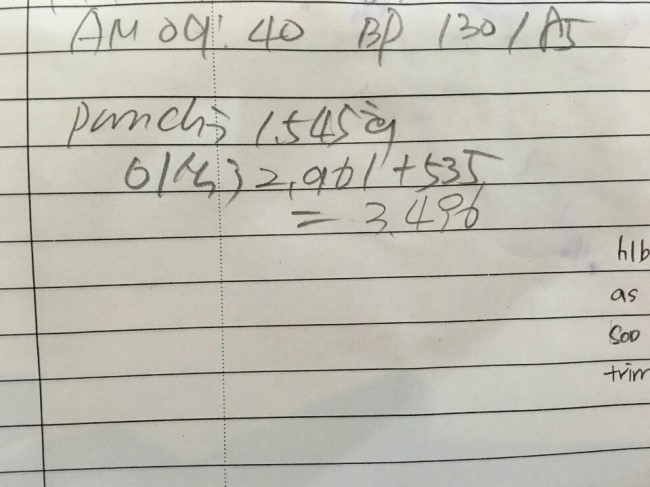 AM 09:40 BP 130/85
punch 1.545
2,961+535
= 3.496
hlb
as
soo
trim